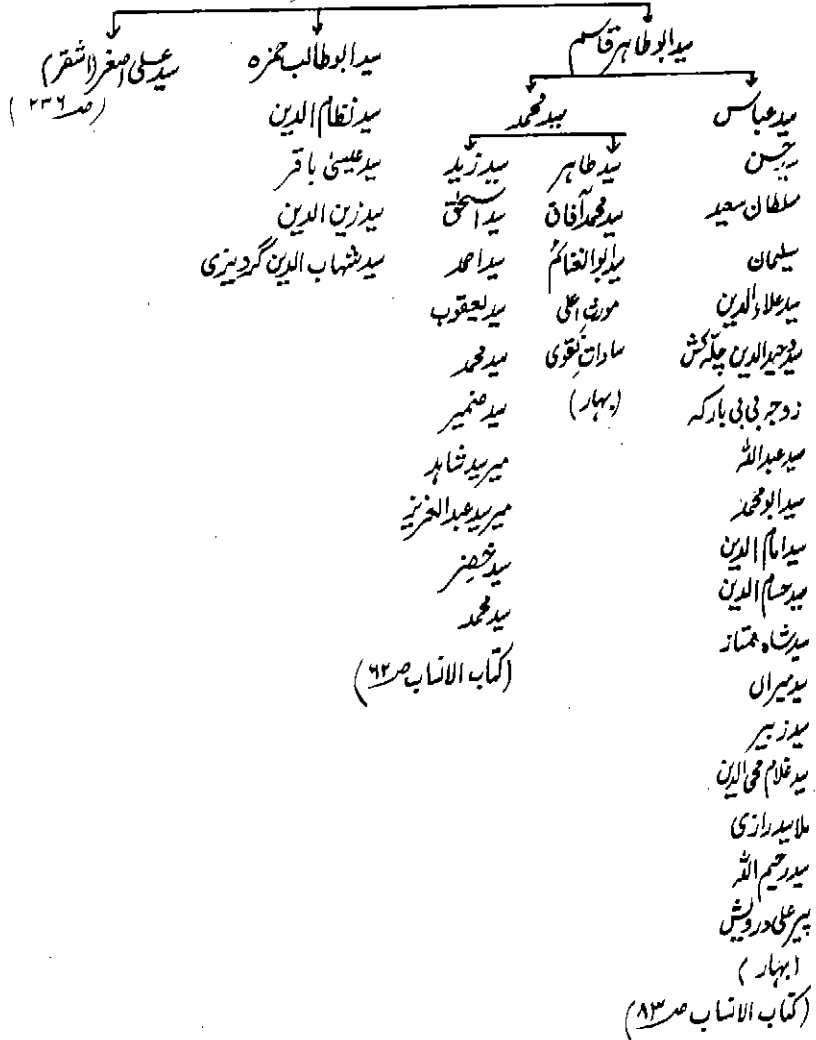 سید ابو طاہر قاسم
سید ابو طالب حمزہ
سید علی اصغر (اشقر)
(صـ ۲۳۶)
سید عباس
حسن
سلطان سعید
سلیمان
سید علاء الدین
سید وحید الدین چلّہ کش
زوجہ بی بی بارکہ
سید عبداللہ
سید ابو محمد
سید امام الدین
سید حسام الدین
سید شاہ ممتاز
سید میراں
سید زبیر
سید غلام محی الدین
ملا سید رازی
سید رحیم اللہ
پیر علی درویش
(بہار)
(کتاب الانساب صـ ۸۳)
سید محمد
سید طاہر
سید محمد آفاق
سید ابو الغنائم
مورث اعلی
سادات نقوی
(بہار)
سید زید
سید اسحٰق
سید احمد
سید یعقوب
سید محمد
سید ضمیر
میر سید شاہد
میر سید عبدالعزیز
سید خضر
سید محمد
(کتاب الانساب صـ ۶۲)
سید نظام الدین
سید عیسیٰ باقر
سید زین الدین
سید شہاب الدین گردیزی